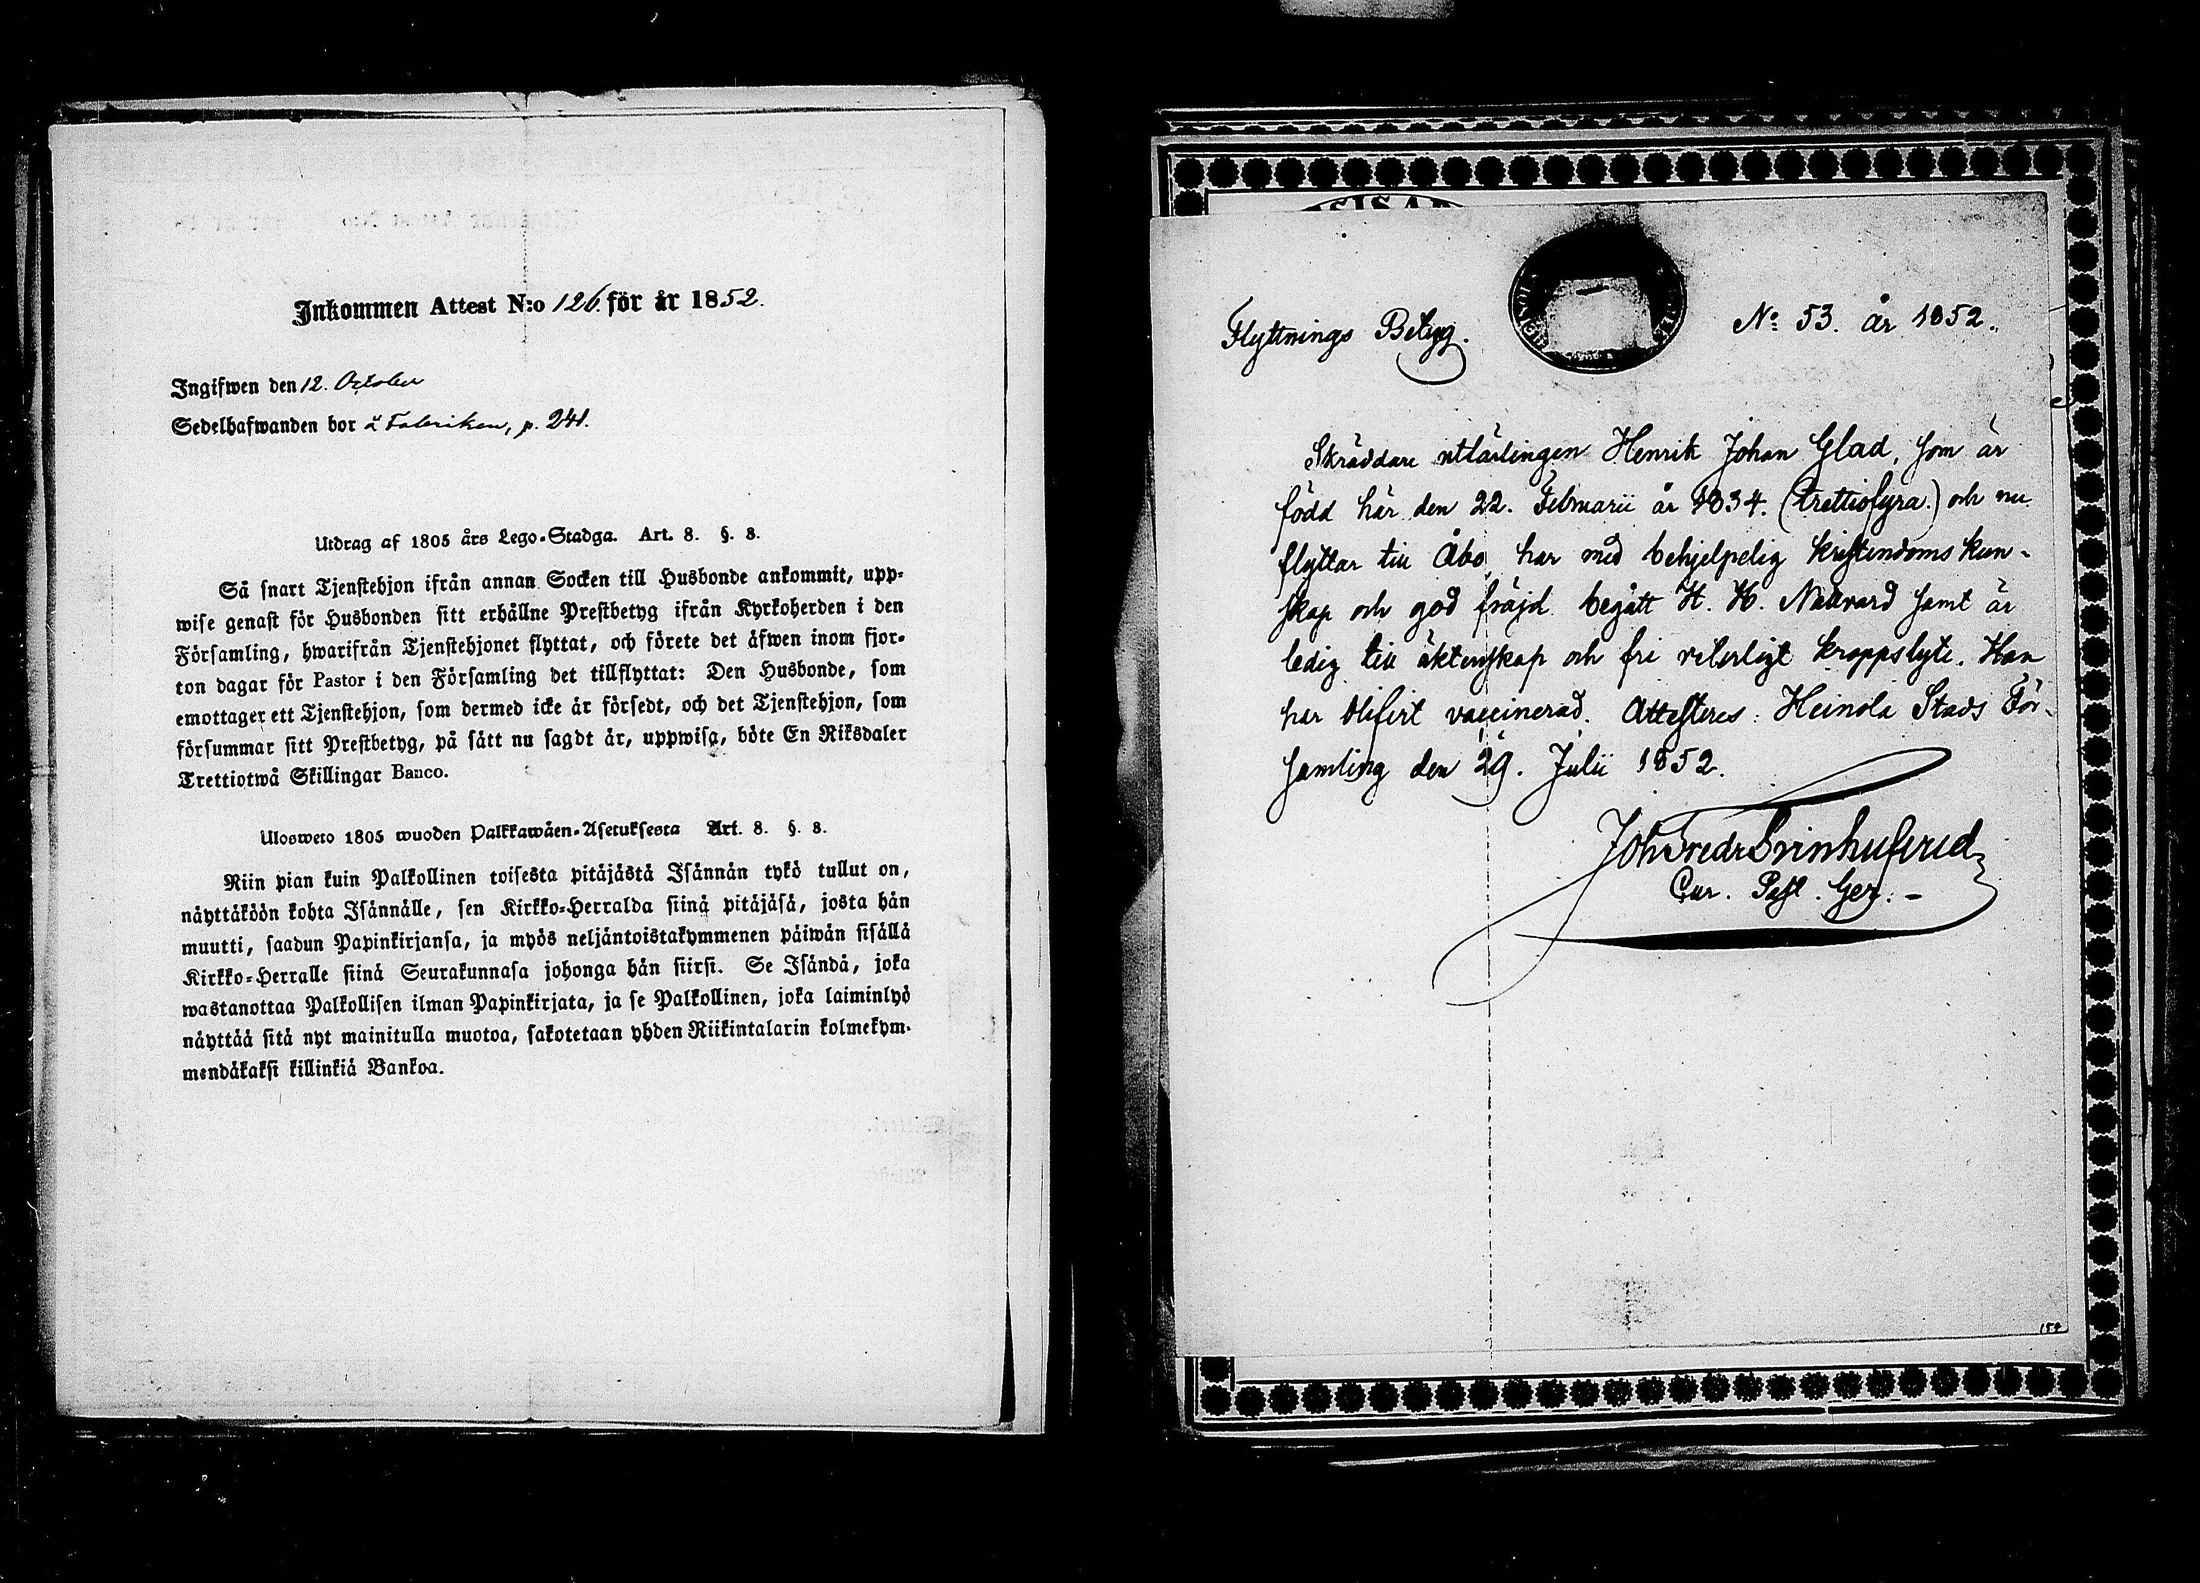 Inkommen Attest N:o 126. för år 1852.
Ingifwen den 12. October
Sedelhafwanden bor å Fabriken, p. 241.
Utdrag af 1805 års Lego-Stadga. Art. 8. §. 8.
Så snart Tjenstehjon ifrån annan Socken till Husbonde ankommit, upp-
wise genast för Husbonden sitt erhållne Prestbetyg ifrån Kyrkoherden i den
Församling, hwarifrån Tjenstehjonet flyttat, och förete det äfwen inom fjor-
ton dagar för Pastor i den Församling det tillflyttat: Den Husbonde, som
emottager ett Tjenstehjon, som dermed icke är försedt, och det Tjenstehjon, som
försummar sitt Prestbetyg, på sätt nu sagdt är, uppwisa, böte En Riksdaler
Trettiotwå Skillingar Banco.
Ulosweto 1805 wuoden Palkkawäen-Asetuksesta Art. 8. §. 8.
Niin pian kuin Palkollinen toisesta pitäjästä Isännän tykö tullut on,
näyttäköön kohta Isännälle, sen Kirkko-Herralda siinä pitäjäsä, josta hän
muutti, saadun Papinkirjansa, ja myös neljäntoistakymmenen päiwän sisällä
Kirkko-Herralle siinä Seurakunnasa johonga hän siirsi. Se Isändä, joka
wastanottaa Palkollisen ilman Papinkirjata, ja se Palkollinen, joka laiminlyö
näyttää sitä nyt mainitulla muotoa, sakotetaan yhden Riikintalarin kolmekym-
mendäkaksi killinkiä Bankoa.
Flyttnings Betyg.
No: 53. år 1852.
Skräddare utlärlingen Henrik Johan Glad, som är
född här den 22. Februarii år 1834. (trettiofyra.) och nu
flyttar till Åbo, har med behjelpelig kristendoms kun-
skap och god fräjd begått H. H. Nattvard samt är
ledig till äktenskap och fri veterligt kroppslyte. Han
har blifvit vaccinerad. Attesteres: Heinola Stads För-
samling den 29. Julii 1852.
Joh Fredr Svinhufvud
Cur. Past. Ger.
154